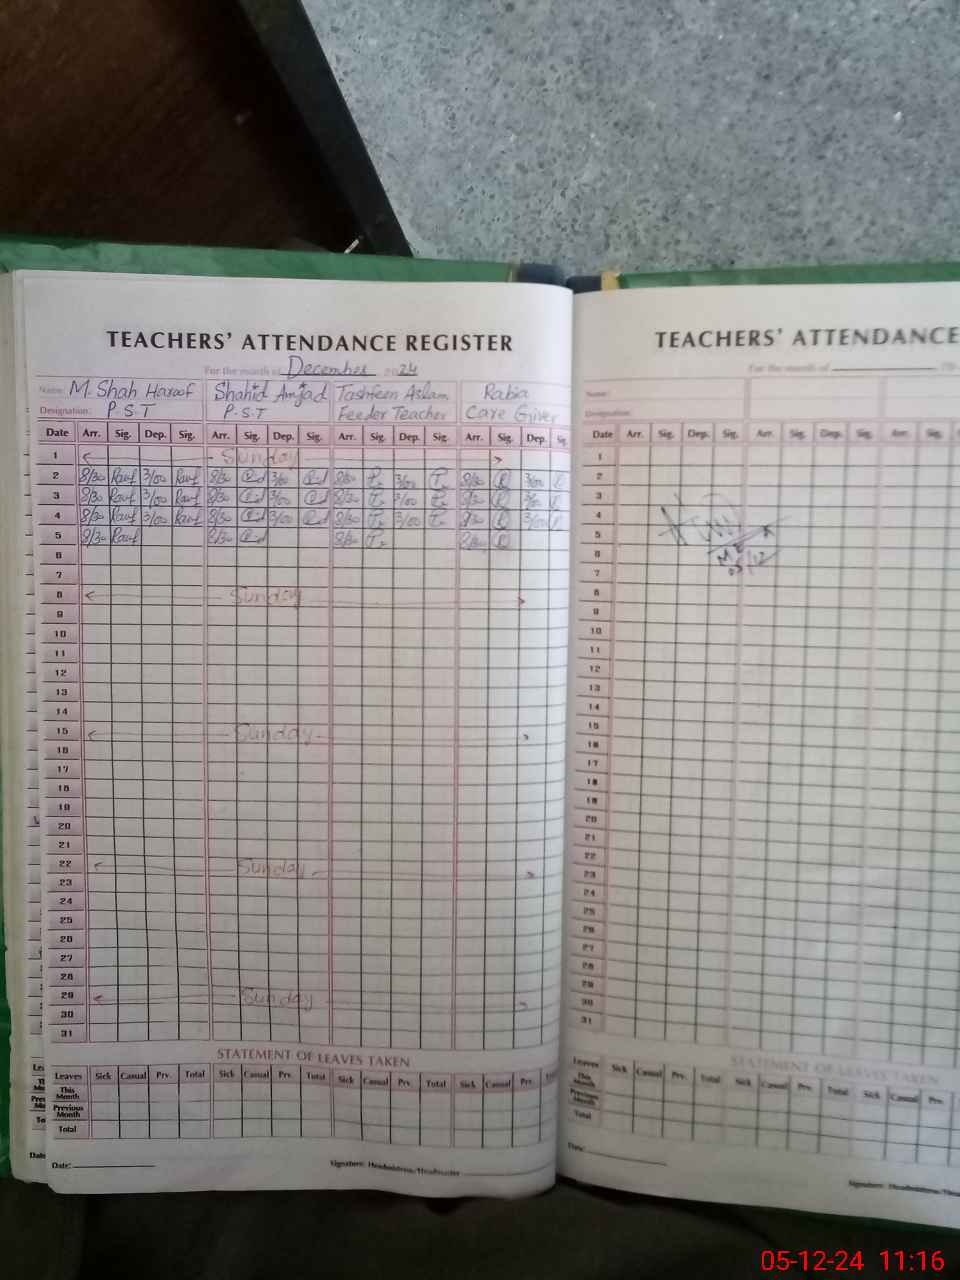 TEACHERS' ATTENDANCE REGISTER
For the month of December 2024
Name: M. Shah Haroof Shahid Amjad Tashfeen Aslam Rabia
Designation: P.S.T P.S.T Feeder Teacher Care Giver
Date Arr. Sig. Dep. Sig. Arr. Sig. Dep. Sig. Arr. Sig. Dep. Sig. Arr. Sig. Dep. Sig.
1 Sunday
2 8/30 Rauf 3/00 Rauf 8/30 3/00 8/30 3/00 8/30 3/00
3 8/30 Rauf 3/00 Rauf 8/30 3/00 8/30 3/00 8/30 3/00
4 8/30 Rauf 3/00 Rauf 8/30 3/00 8/30 3/00 8/30 3/00
5 8/30 Rauf 8/30 8/30
6
7
8 Sunday
9
10
11
12
13
14
15 Sunday
16
17
18
19
20
21
22 Sunday
23
24
25
26
27
28
29 Sunday
30
31
STATEMENT OF LEAVES TAKEN
Leaves Sick Casual Prv. Total Sick Casual Prv. Total Sick Casual Prv. Total Sick Casual Prv.
This Month
Previous Month
Total
Date: Signature: Headmistress/Headmaster
TEACHERS' ATTENDANCE
For the month of
Name:
Designation:
Date Arr. Sig. Dep. Sig. Arr. Sig. Dep. Sig. Arr. Sig.
1
2
3
4
5
6
7
8
9
10
11
12
13
14
15
16
17
18
19
20
21
22
23
24
25
26
27
28
29
30
31
05/12
STATEMENT OF LEAVES TAKEN
Leaves Sick Casual Prv. Total Sick Casual Prv. Total Sick Casual Prv.
This Month
Previous Month
Total
Date:
05-12-24 11:16